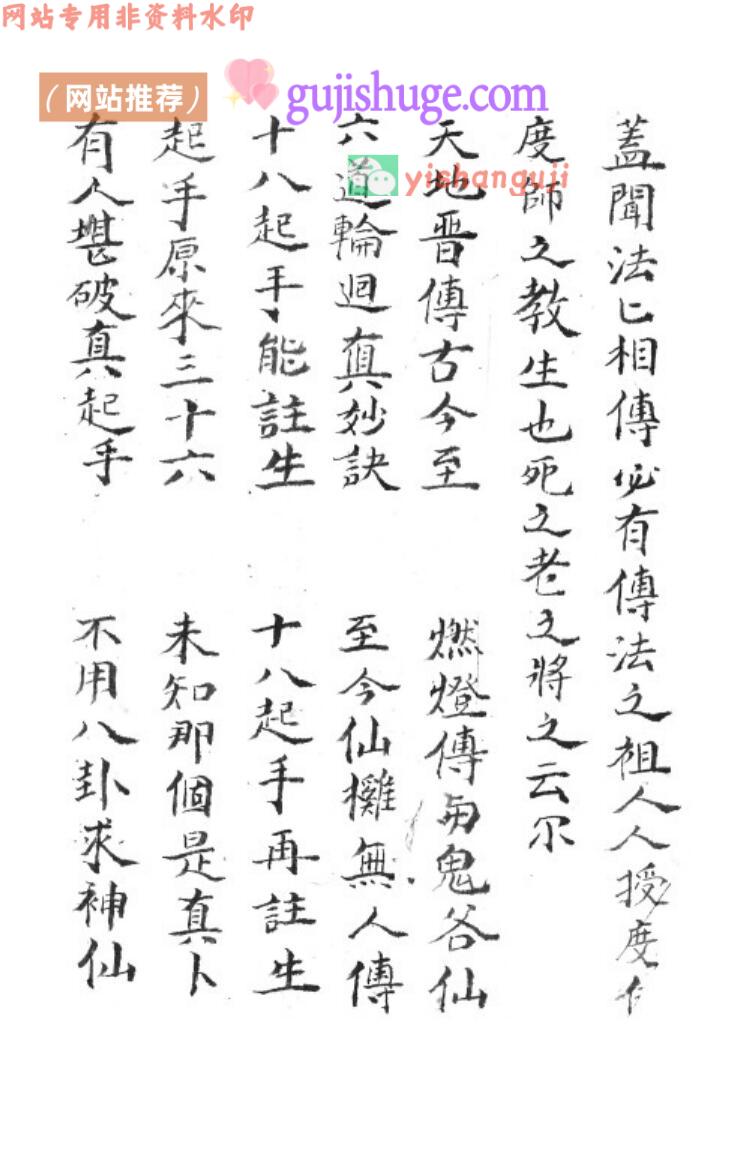 网站专用非资料水印
（网站推荐）
gujishuge.com
yishanguji
蓋聞法匕相傳必有傳法之祖人人授度
度師之教生也死之老之將之云尔
天地晋傳古今至 燃燈傳与鬼谷仙
六道輪迴真妙訣 至今仙攤無人傳
十八起手能註生 十八起手再註生
起手原來三十六 未知那個是真卜
有人堪破真起手 不用八卦求神仙